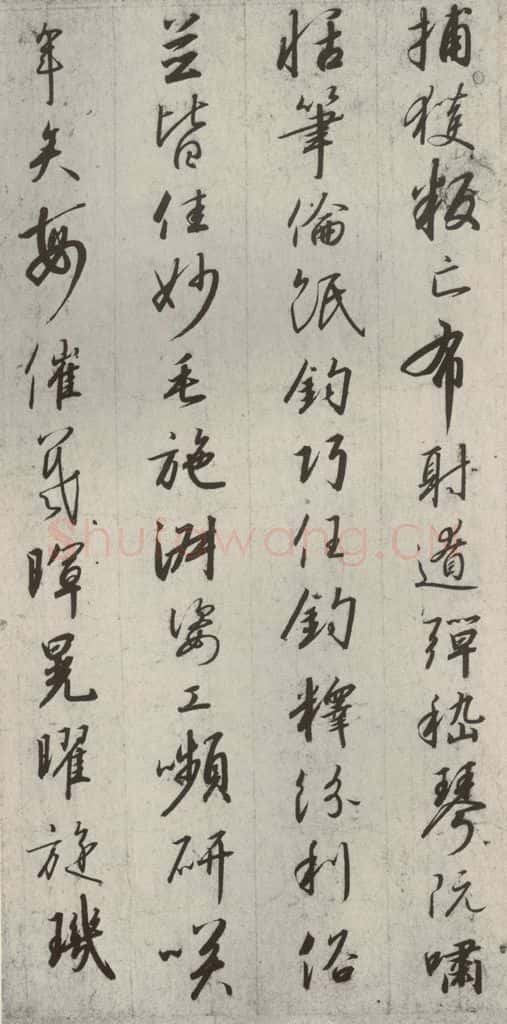 捕獲叛亡布射遼彈嵇琴阮嘯
恬筆倫紙鈞巧任釣釋紛利俗
並皆佳妙毛施淑姿工嚬研咲
年矢每催羲暉晃曜旋璣
Shufawang.CN